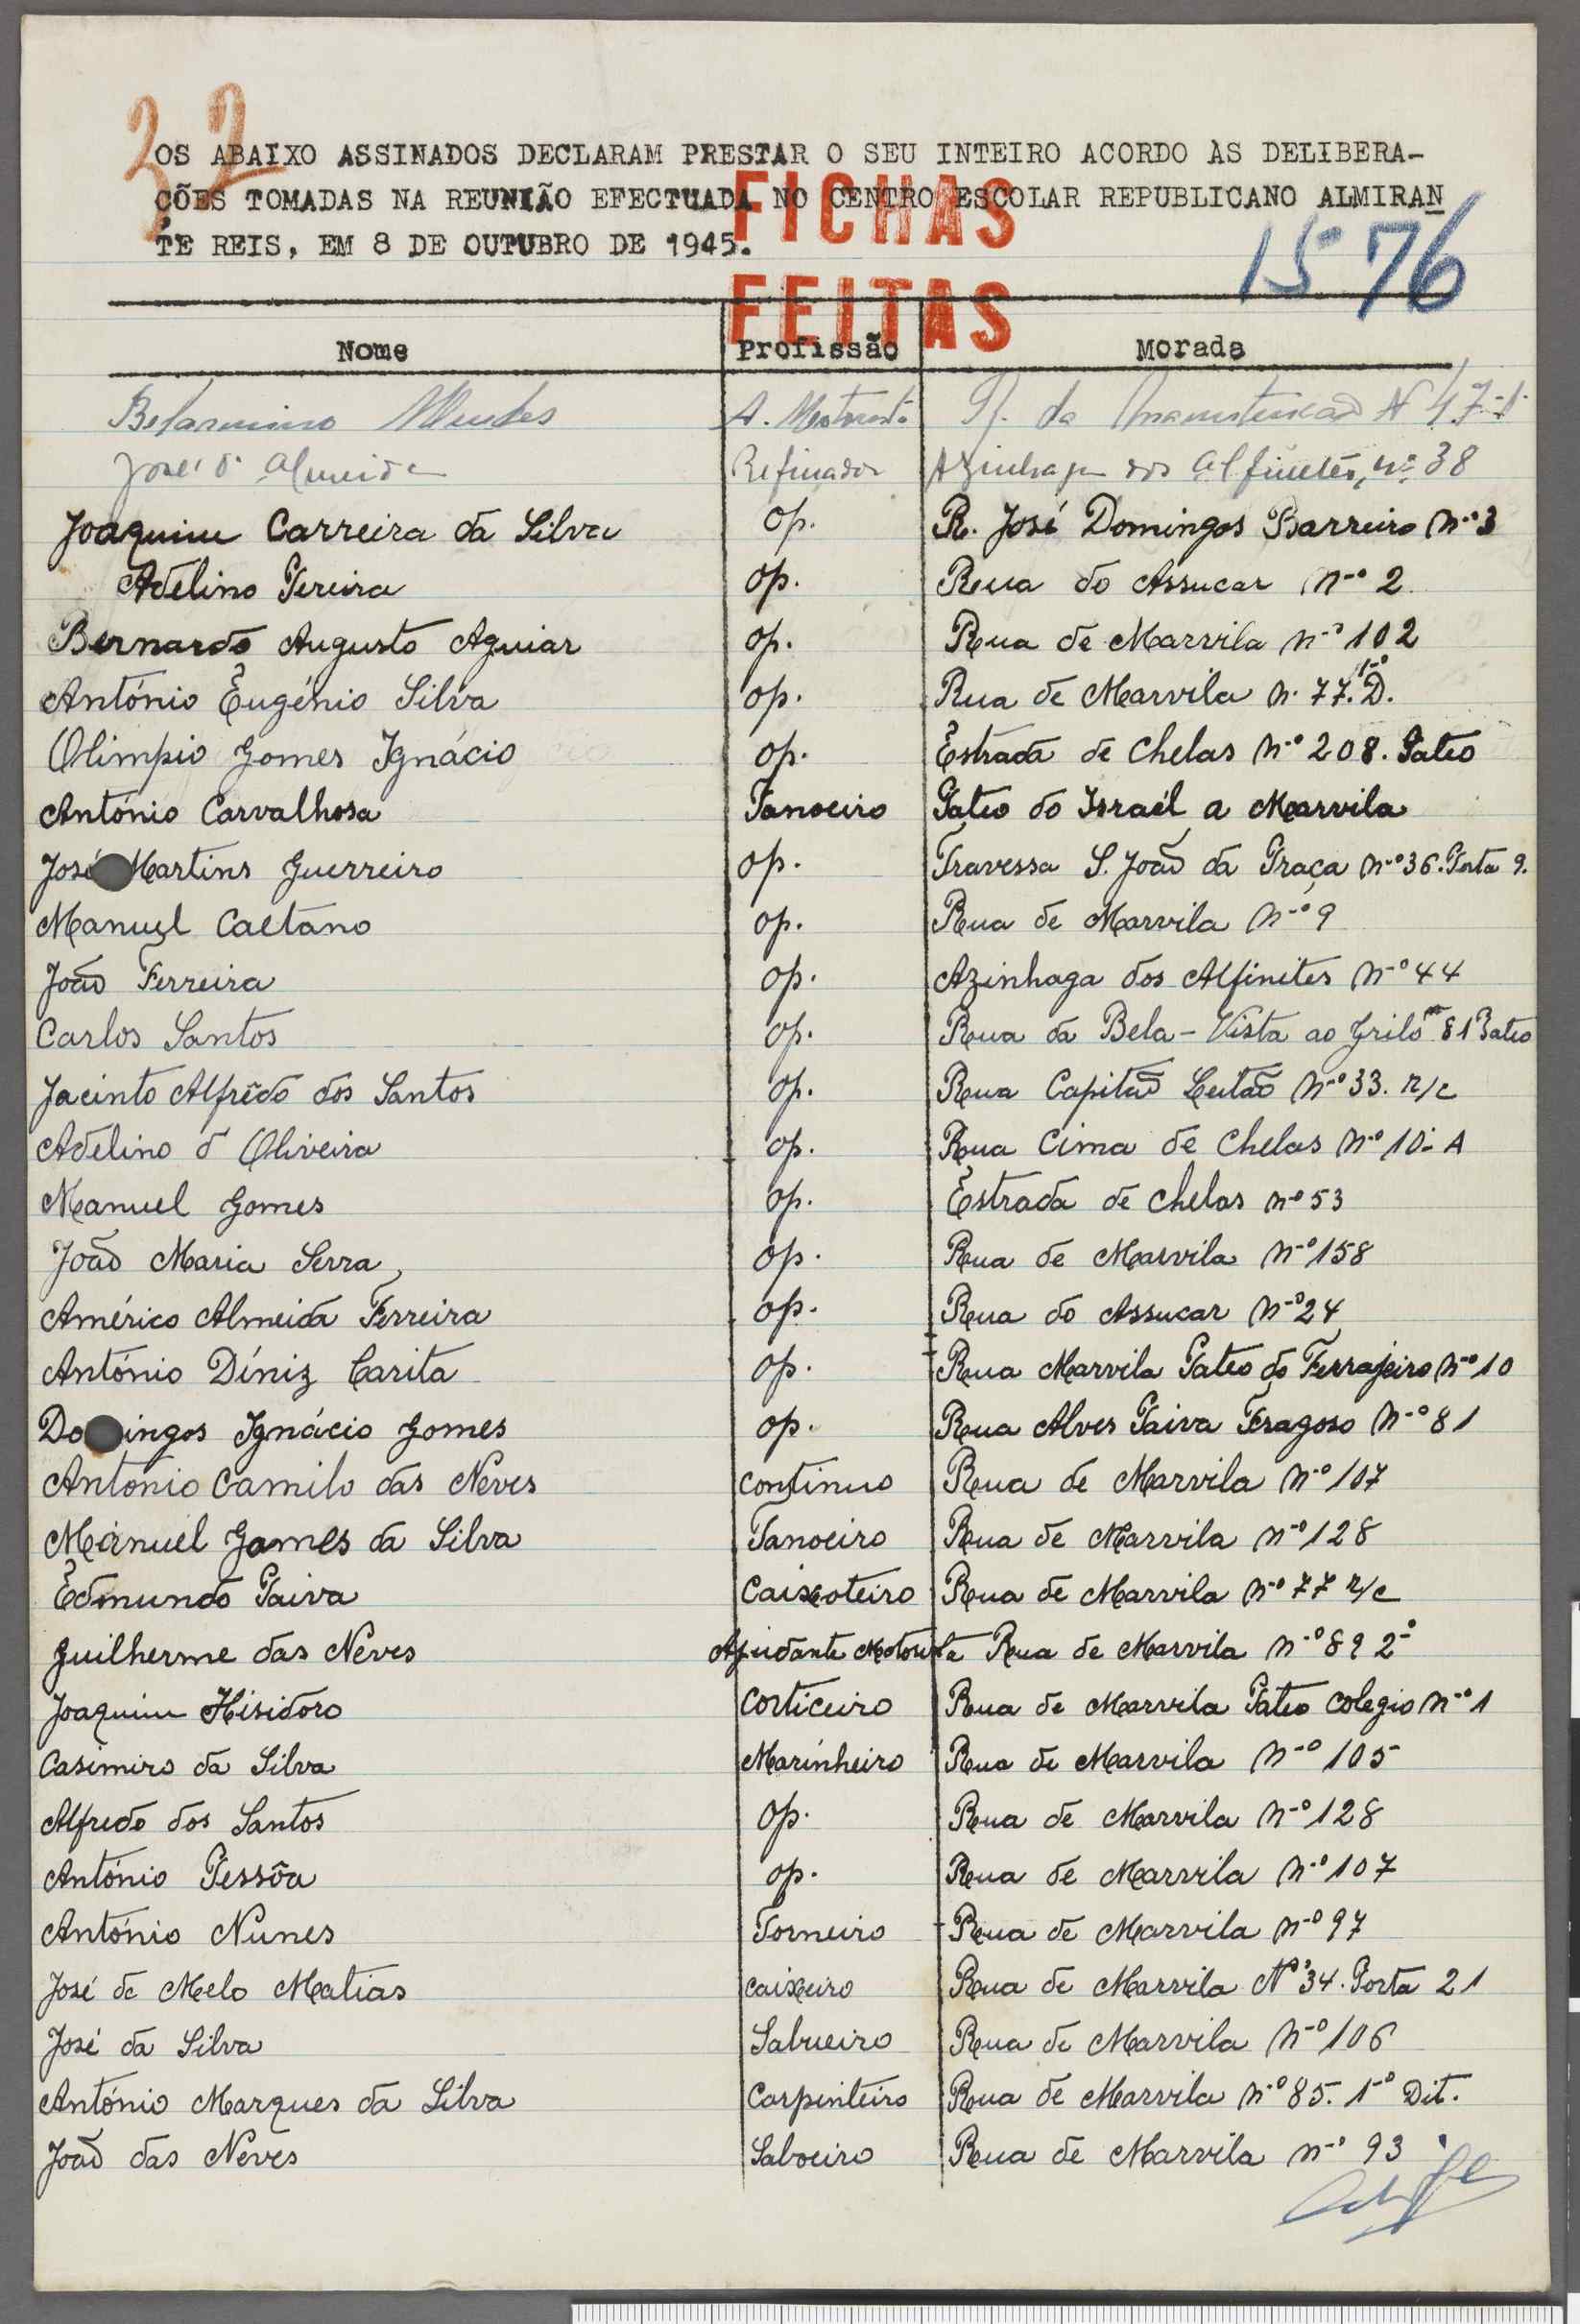 32
OS ABAIXO ASSINADOS DECLARAM PRESTAR O SEU INTEIRO ACORDO ÀS DELIBERA-
ÇÕES TOMADAS NA REUNIÃO EFECTUADA NO CENTRO ESCOLAR REPUBLICANO ALMIRAN
TE REIS, EM 8 DE OUTUBRO DE 1945.
FICHAS
FEITAS
1576
Nome Profissão Morada
Belarmino Mendes A. Motorista R. da Manutenção Nº 47-1º
José d'Almeida Refinador Azinhaga dos Alfinetes, nº 38
Joaquim Carreira da Silva op. R. José Domingos Barreiro nº 3
Adelino Pereira op. Rua do Assucar nº 2
Bernardo Augusto Aguiar op. Rua de Marvila nº 102
António Eugénio Silva op. Rua de Marvila n. 77. 1º D.
Olimpio Gomes Ignácio op. Estrada de Chelas nº 208. Pateo
António Carvalhosa Tanoeiro Pateo do Israél a Marvila
José Martins Guerreiro op. Travessa S. João da Praça nº 36. Porta 9.
Manuel Caetano op. Rua de Marvila nº 9
João Ferreira op. Azinhaga dos Alfinites nº 44
Carlos Santos op. Rua da Bela-Vista ao Grilo nº 81 Pateo
Jacinto Alfrêdo dos Santos op. Rua Capitão Leitão nº 33. r/c
Adelino d'Oliveira op. Rua Cima de Chelas nº 10-A
Manuel Gomes op. Estrada de Chelas nº 53
João Maria Serra op. Rua de Marvila nº 158
Américo Almeida Ferreira op. Rua do Assucar nº 24
António Díniz Carita op. Rua Marvila Pateo do Ferrajeiro nº 10
Domingos Ignácio Gomes op. Rua Alves Paiva Fragoso nº 81
António Camilo das Neves continuo Rua de Marvila nº 107
Manuel Gomes da Silva Tanoeiro Rua de Marvila nº 128
Edmundo Paiva Caixoteiro Rua de Marvila nº 77 r/c
Guilherme das Neves Ajudante Motorista Rua de Marvila nº 89 2º
Joaquim Hisidoro Corticeiro Rua de Marvila Pateo Colegio nº 1
Casimiro da Silva Marinheiro Rua de Marvila nº 105
Alfredo dos Santos op. Rua de Marvila nº 128
António Pessôa op. Rua de Marvila nº 107
António Nunes Torneiro Rua de Marvila nº 97
José de Melo Matias caixeiro Rua de Marvila Nº 34. Porta 21
José da Silva Sabueiro Rua de Marvila nº 106
António Marques da Silva Carpinteiro Rua de Marvila nº 85. 1º Dit.
João das Neves Saboeiro Rua de Marvila nº 93